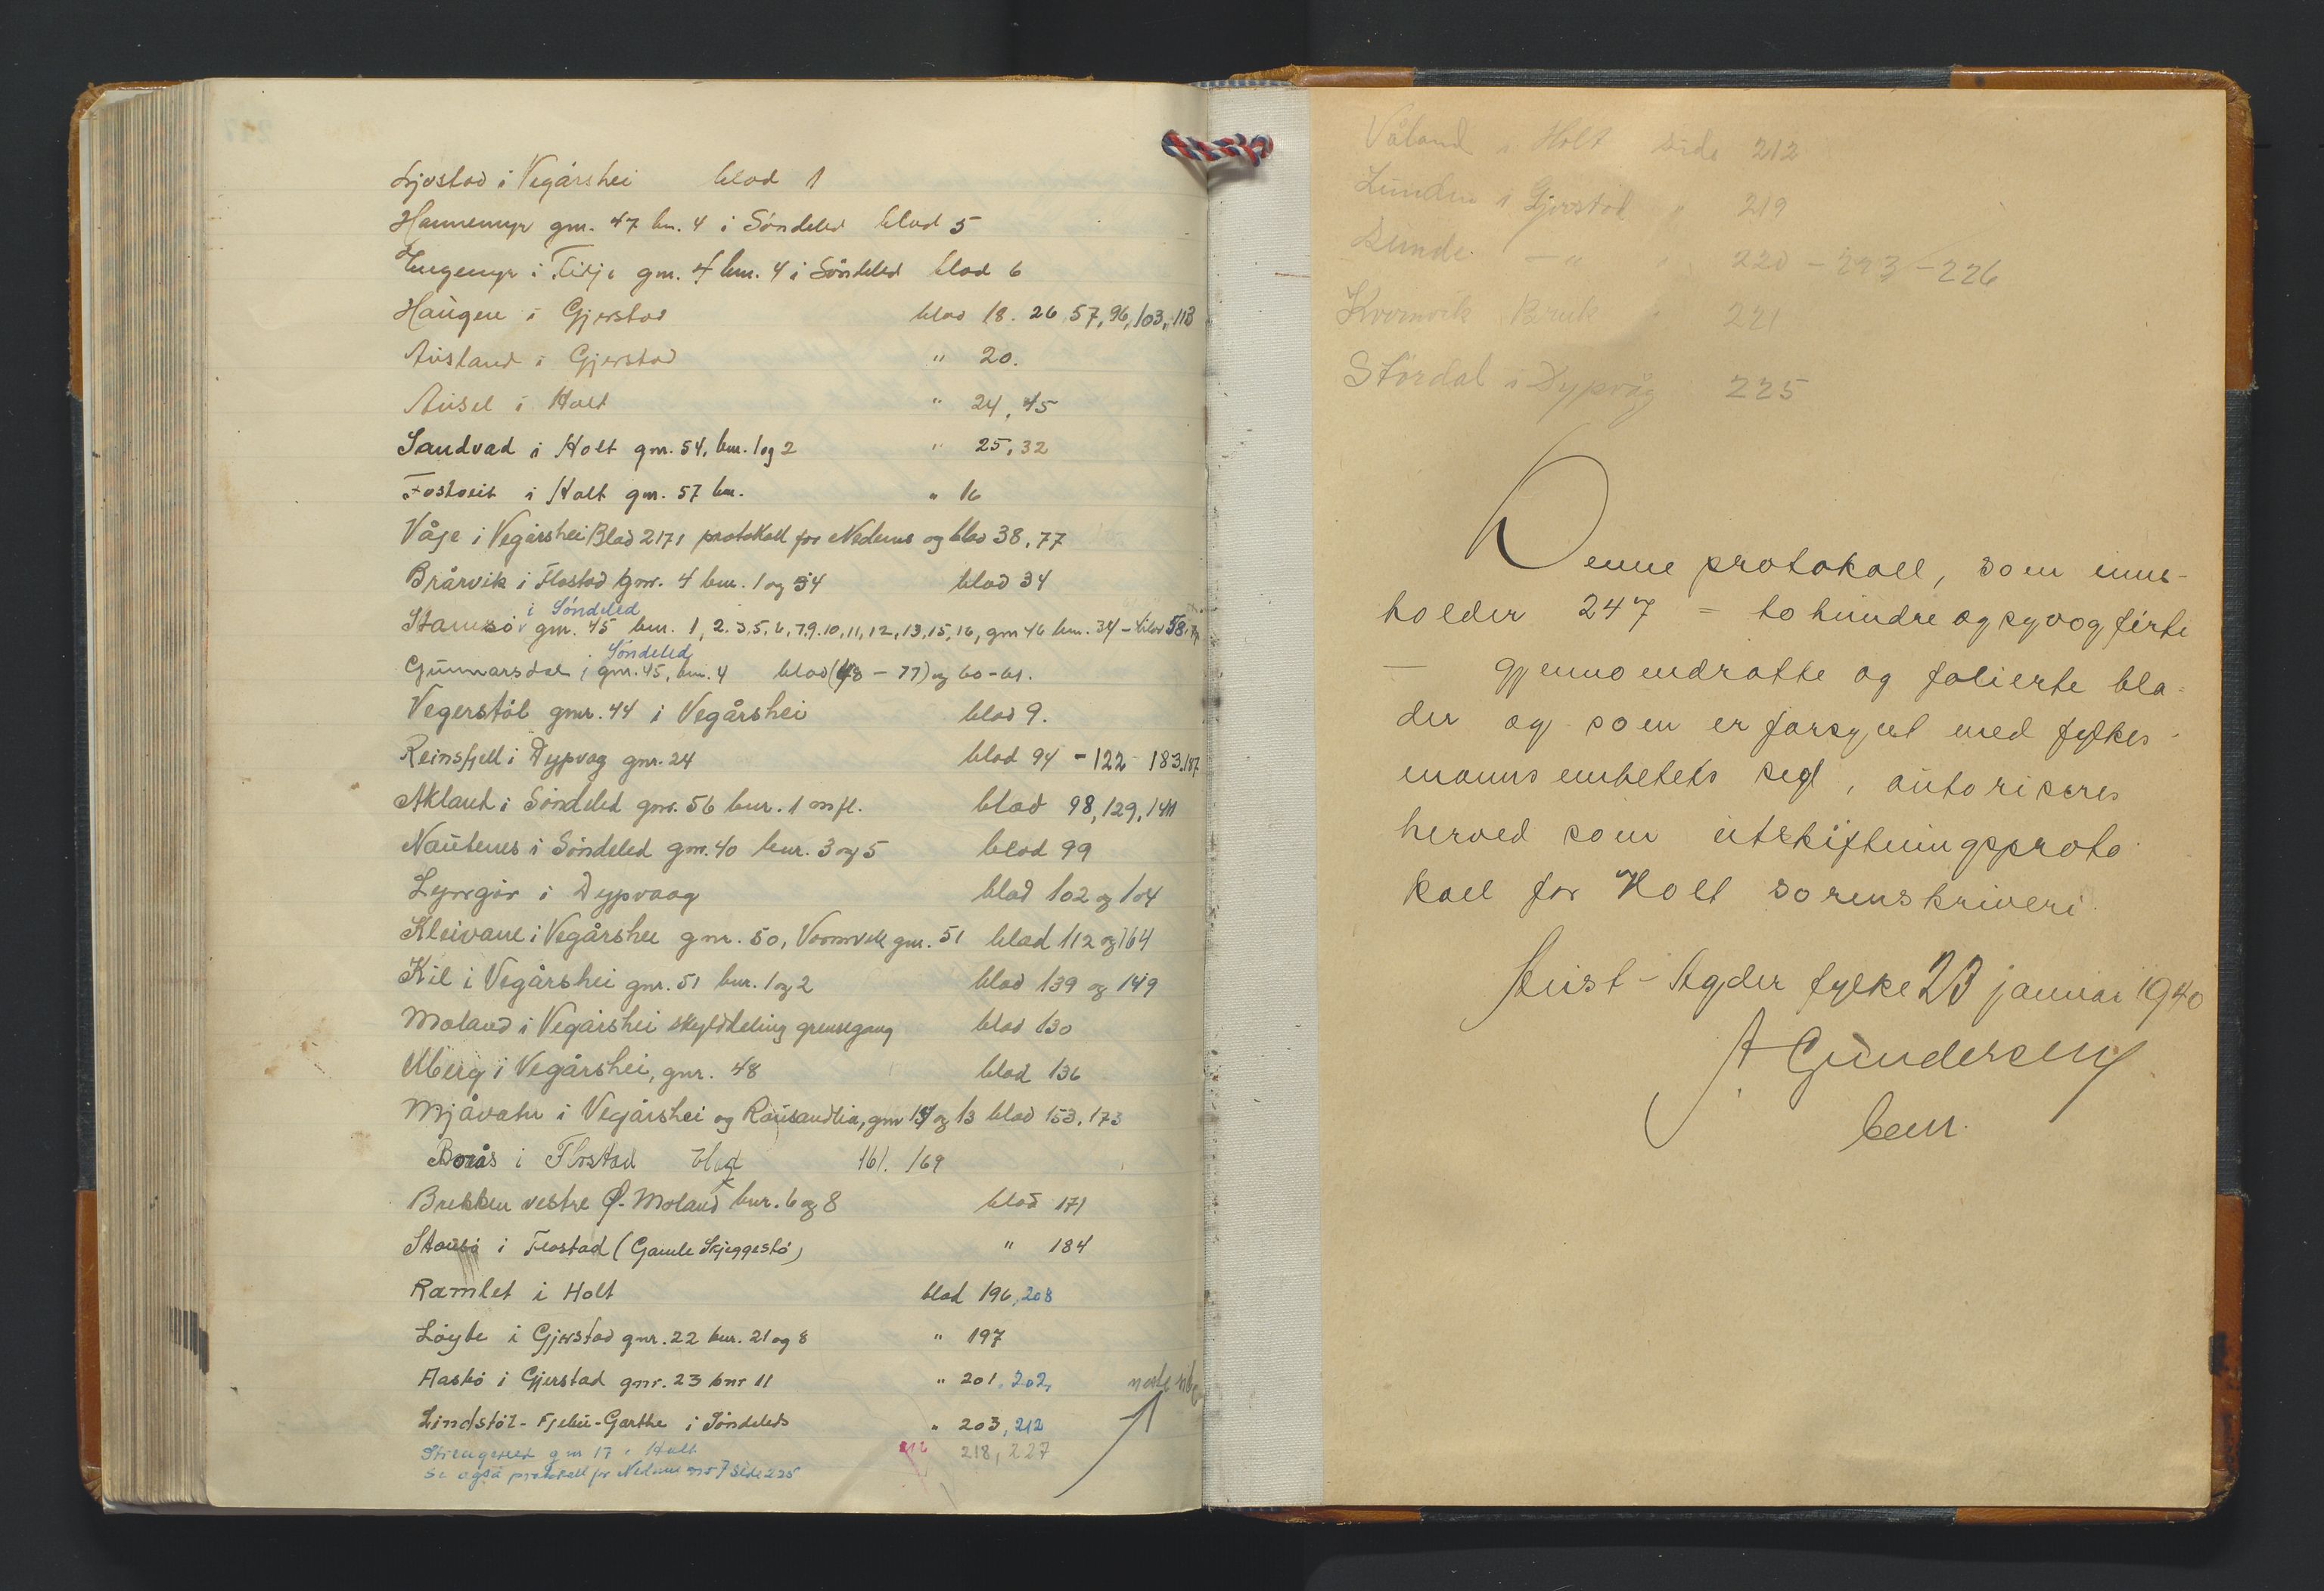 Ljøstad i Vegårshei blad 1
Hammemyr gnr. 47 bnr. 4 i Søndeled blad 5
i gnr. 4 bnr. 4 i Søndeled blad 6
Haugen i Gjerstad blad 18. 26, 57, 96, 103, 113
Ausland i Gjerstad " 20.
Ausel i Holt " 24, 45
Sandvad i Holt gnr. 54, bnr. 1 og 2 " 25, 32
Fostveit i Holt gnr. 57 bnr. " 16
Våje i Vegårshei Blad 217 i protokoll for Nedenes og blad 38, 77
Brårvik i Flostad gnr. 4 bnr. 1 og 54 blad 34
i Søndeled
Stamsø gnr. 45 bnr. 1, 2. 3, 5, 6, 7, 9. 10, 11, 12, 13, 15, 16, gnr 46 bnr. 34 - blad 58,
Søndeled
Gunnarsdal i gnr. 45, bnr. 4 blad (48 - 77) og 60-61.
Vegerstøl gnr. 44 i Vegårshei blad 9.
Reinsfjell i Dypvag gnr. 24 blad 94 - 122 - 183, 187
Akland i Søndeled gnr. 56 bnr. 1 m fl. blad 98, 129, 141
Nautenes i Søndeled gnr. 40 bnr. 3 og 5 blad 99
Lyngør i Dypvaag blad 102 og 104
Kleivane i Vegårshei gnr. 50, Vormvik gnr. 51 blad 112 og 164
Kil i Vegårshei gnr. 51 bnr. 1 og 2 blad 139 og 149
Moland i Vegårshei skylddeling grensegang blad 130
Uberg i Vegårshei, gnr. 48 blad 136
Mjåvatn i Vegårshei og Rausandlia, gnr 14 og 13 blad 153, 173
Borås i Flostad blad 161. 169
Brekken vestre Ø-Moland bnr. 6 og 8 blad 171
Staubø i Flostad (Gamle Skjeggestø) " 184
Ramlet i Holt blad 196, 208
Løyte i Gjerstad gnr. 22 bnr. 21 og 8 " 197
Aasbø i Gjerstad gnr. 23 bnr 11 " 201, 202, neste side
Lindstøl - Fjelli - Garthe i Søndeled " 203, 212
Strengereid gnr 17 i Holt 218, 227
Se også protokoll for Nedenes nr 7 side 225
Våland i Holt side 212
Lunden i Gjerstad " 219
Lunde - " - " 220 - 223 - 226
Kvernvik Bruk " 221
Størdal i Dypvåg 225
Denne protokoll, som inne-
holder 247 = to hundre og syvogførti
- gjennomdratte og folierte bla-
der og som er forsynt med fylkes-
mannsembetets segl, autoriseres
herved som utskiftningsproto
koll for Holt sorenskriveri.
Aust-Agder fylke 23 januar 1940
A. Gundersen
bem.